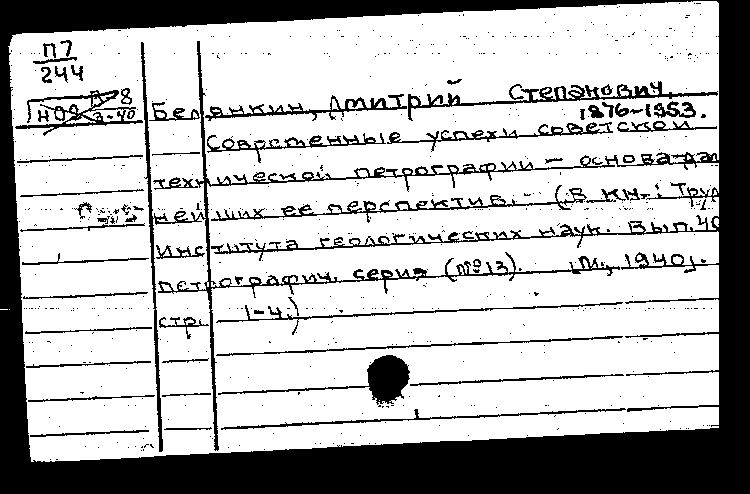 П7
244
Н09 П-8
3-40
Белянкин, Дмитрий Степанович,
1876-1953.
Современные успехи советской
технической петрографии — основа дал
нейших ее перспектив. - (В кн.: Труд
Института геологических наук. Вып. 40
петрографич. серия (№13). М., 1940.
стр. 1-4.)